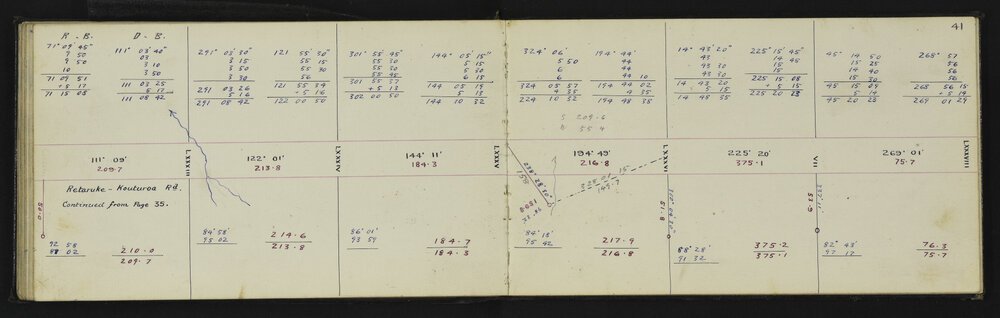 41
R. B. D. B.
71° 09' 45"
9 50
9 50
10
71 09 51
+ 5 17
71 15 08
111° 03' 40"
03
3 10
3 50
111 03 25
5 17
111 08 42
291° 03' 30"
3 15
3 50
3 30
291 03 26
5 16
291 08 42
121 55' 30"
55 15
55 30
56
121 55 34
+ 5 16
122 00 50
301° 55' 45"
55 30
55 30
55 45
301 55 37
+ 5 13
302 00 50
144° 05' 15"
5 15
5 30
6 15
144 05 19
5 13
144 10 32
324° 06'
5 50
6
6
324 05 57
4 35
224 10 32
194° 44'
44
44
44 10
194 44 02
4 35
194 48 35
S 209.6
55 4
14° 43' 20"
43
43 30
43 30
14 43 20
5 15
14 48 35
225° 15' 45"
14 45
15
15
225 15 08
+ 5 15
225 20 23
45° 14 50
15 25
14 40
15 30
45 15 09
5 14
45 20 23
268° 57
56
56
56
268 56 15
+ 5 14
269 01 29
111° 09'
209.7
LXXXIII
122° 01'
213.8
LXXXIV
144° 11'
184.3
LXXXV
194° 49'
216.8
LXXXVI
225° 20'
375.1
VII
269° 01'
75.7
LXXXVIII
Retaruke - Kouturoa Rd.
Continued from Page 35.
50.0
158
228 01 15"
149.7
51.8
53.9
92 58
88 02
210.0
209.7
84° 58'
95 02
214.6
213.8
86° 01'
93 59
184.7
184.3
84° 18'
95 42
217.9
216.8
88° 28'
91 32
375.2
375.1
82° 43'
97 17
76.3
75.7